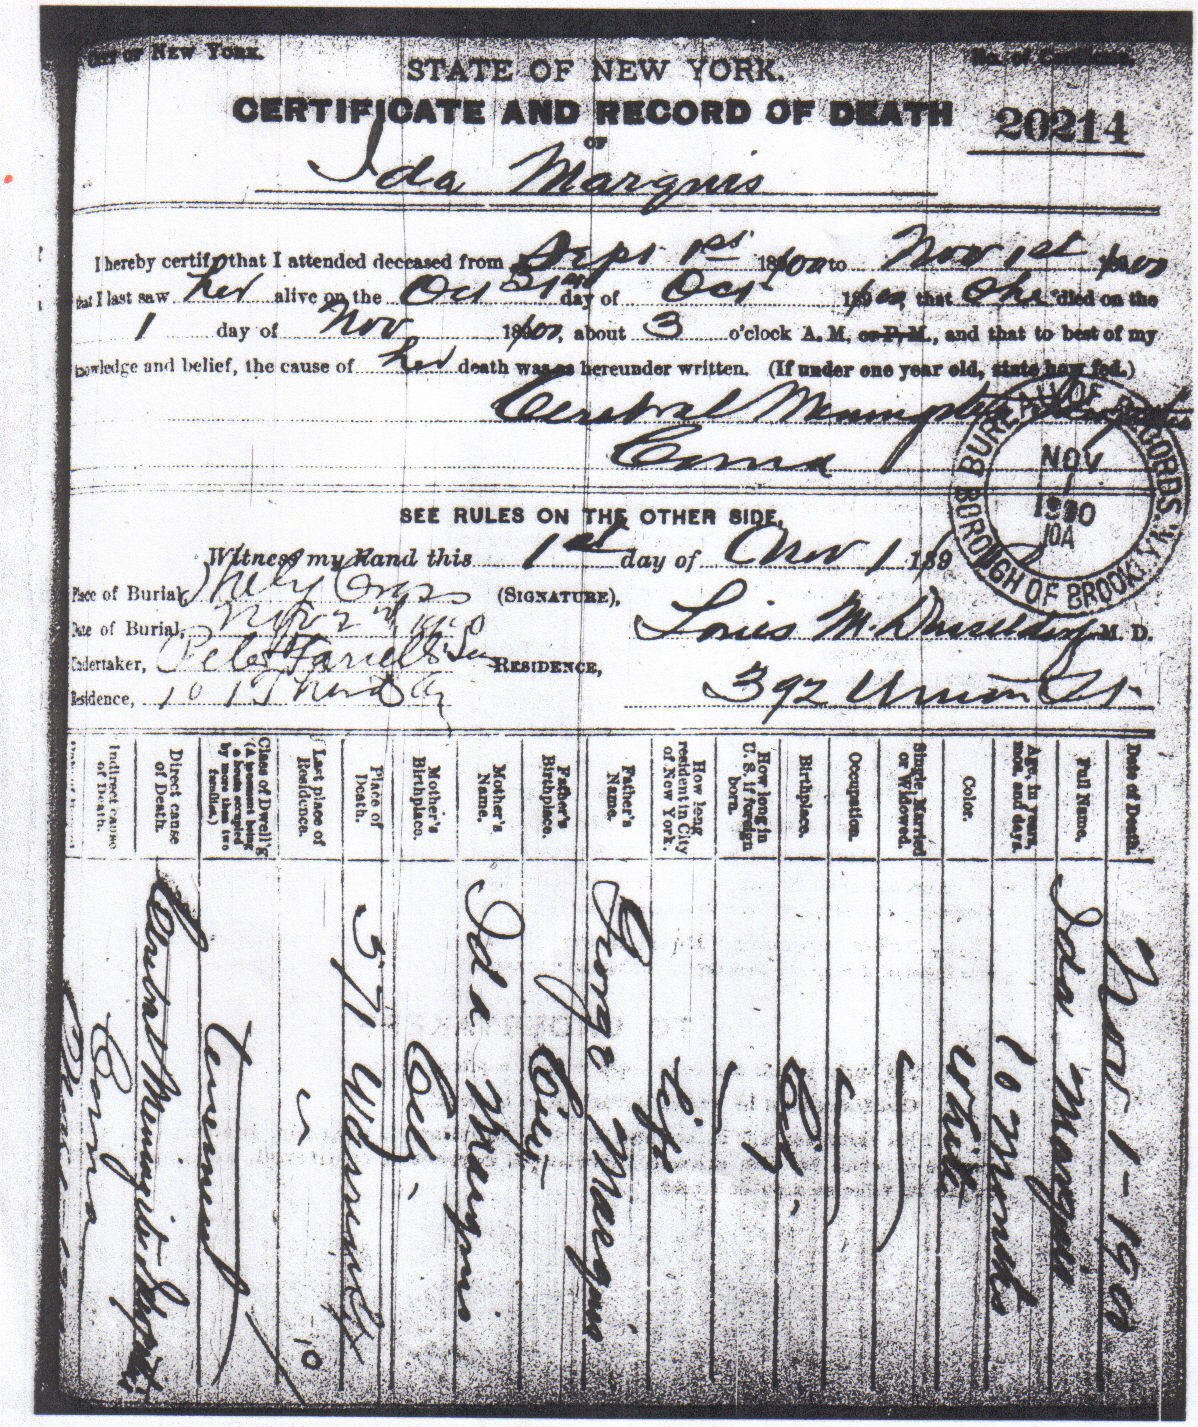 CITY OF NEW YORK.
No. of Certificate.
STATE OF NEW YORK.
CERTIFICATE AND RECORD OF DEATH
20214
OF
Ida Marquis
I hereby certify that I attended deceased from Sept 1st 1900 to Nov 1st 1900
that I last saw her alive on the Oct 31st day of Oct 1900, that she died on the
1 day of Nov 1900, about 3 o'clock A. M. or P. M., and that to best of my
knowledge and belief, the cause of her death was as hereunder written. (If under one year old, state how fed.)
Cerebral
Coma
BUREAU OF RECORDS.
NOV
1
1900
BOROUGH OF BROOKLYN
SEE RULES ON THE OTHER SIDE.
Witness my hand this 1st day of Nov 1 189
Place of Burial, Holy Cross (SIGNATURE),
Date of Burial, Nov 2nd 1900 Louis M. M. D.
Undertaker, Peter Farrell & Son RESIDENCE,
Residence, 101 Third 392 Union St
Date of Death. Nov 1 - 1900
Full Name, Ida
Age, in years, mos. and days. 10 Months
Color. White
Single, Married or Widowed.
Occupation.
Birthplace. City
How long in U. S. if foreign born.
How long resident in City of New York. Life
Father's Name. George Marquis
Father's Birthplace. City
Mother's Name. Ida Marquis
Mother's Birthplace. City
Place of Death. 571 Warren St
Last place of Residence. 10
Class of Dwell'g (A tenement being a house occupied by more than two families.) Tenement
Direct cause of Death. Cerebral
Indirect cause of Death. Coma